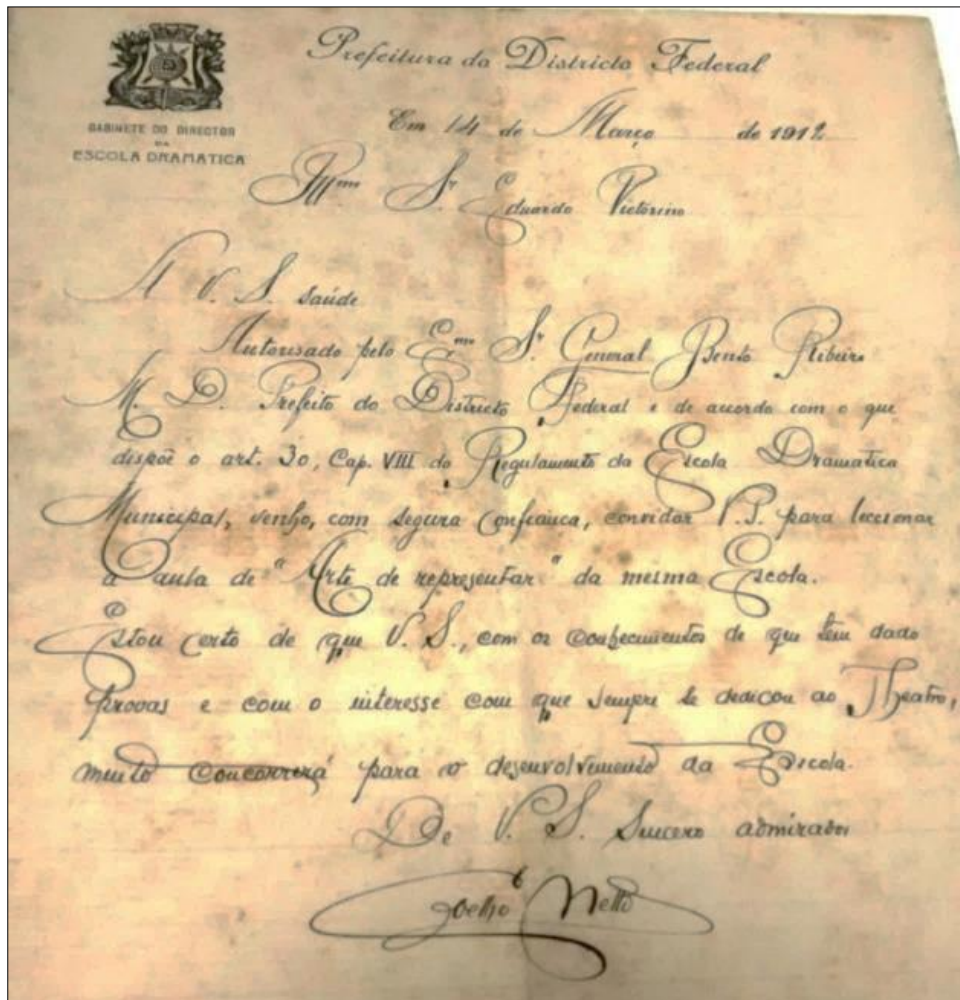 Prefeitura do Districto Federal
GABINETE DO DIRECTOR
DA
ESCOLA DRAMATICA
Em 14 de Março de 1912
Illmo Sr Eduardo Victorino
A V. S. saúde
Autorisado pelo Exmo Sr. General Bento Ribeiro
M. D. Prefeito do Districto Federal e de accordo com o que
dispõe o art. 30, Cap. VIII do Regulamento da Escola Dramatica
Municipal, venho, com segura confiança, convidar V. S. para leccionar
a aula de "Arte de representar" da mesma Escola.
Estou certo de que V. S., com os conhecimentos de que tem dado
provas e com o interesse com que sempre se dedicou ao Theatro,
muito concorrerá para o desenvolvimento da Escola.
De V. S. Sincero admirador
Coelho Netto